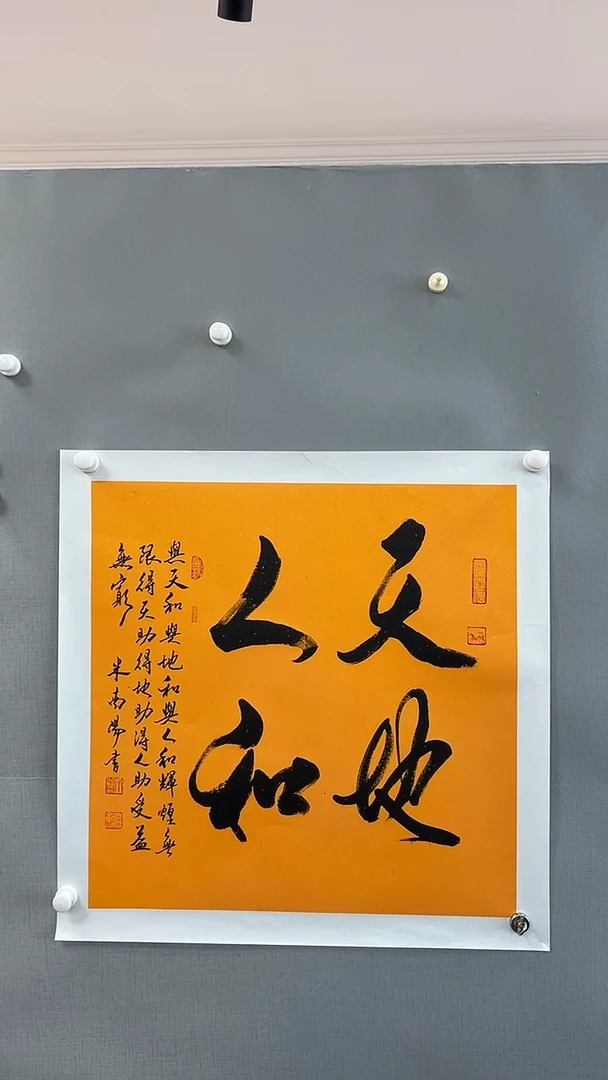 天地
人和
與天和與地和與人和輝煌無
限得天助得地助得人助受益
無窮
米南陽書